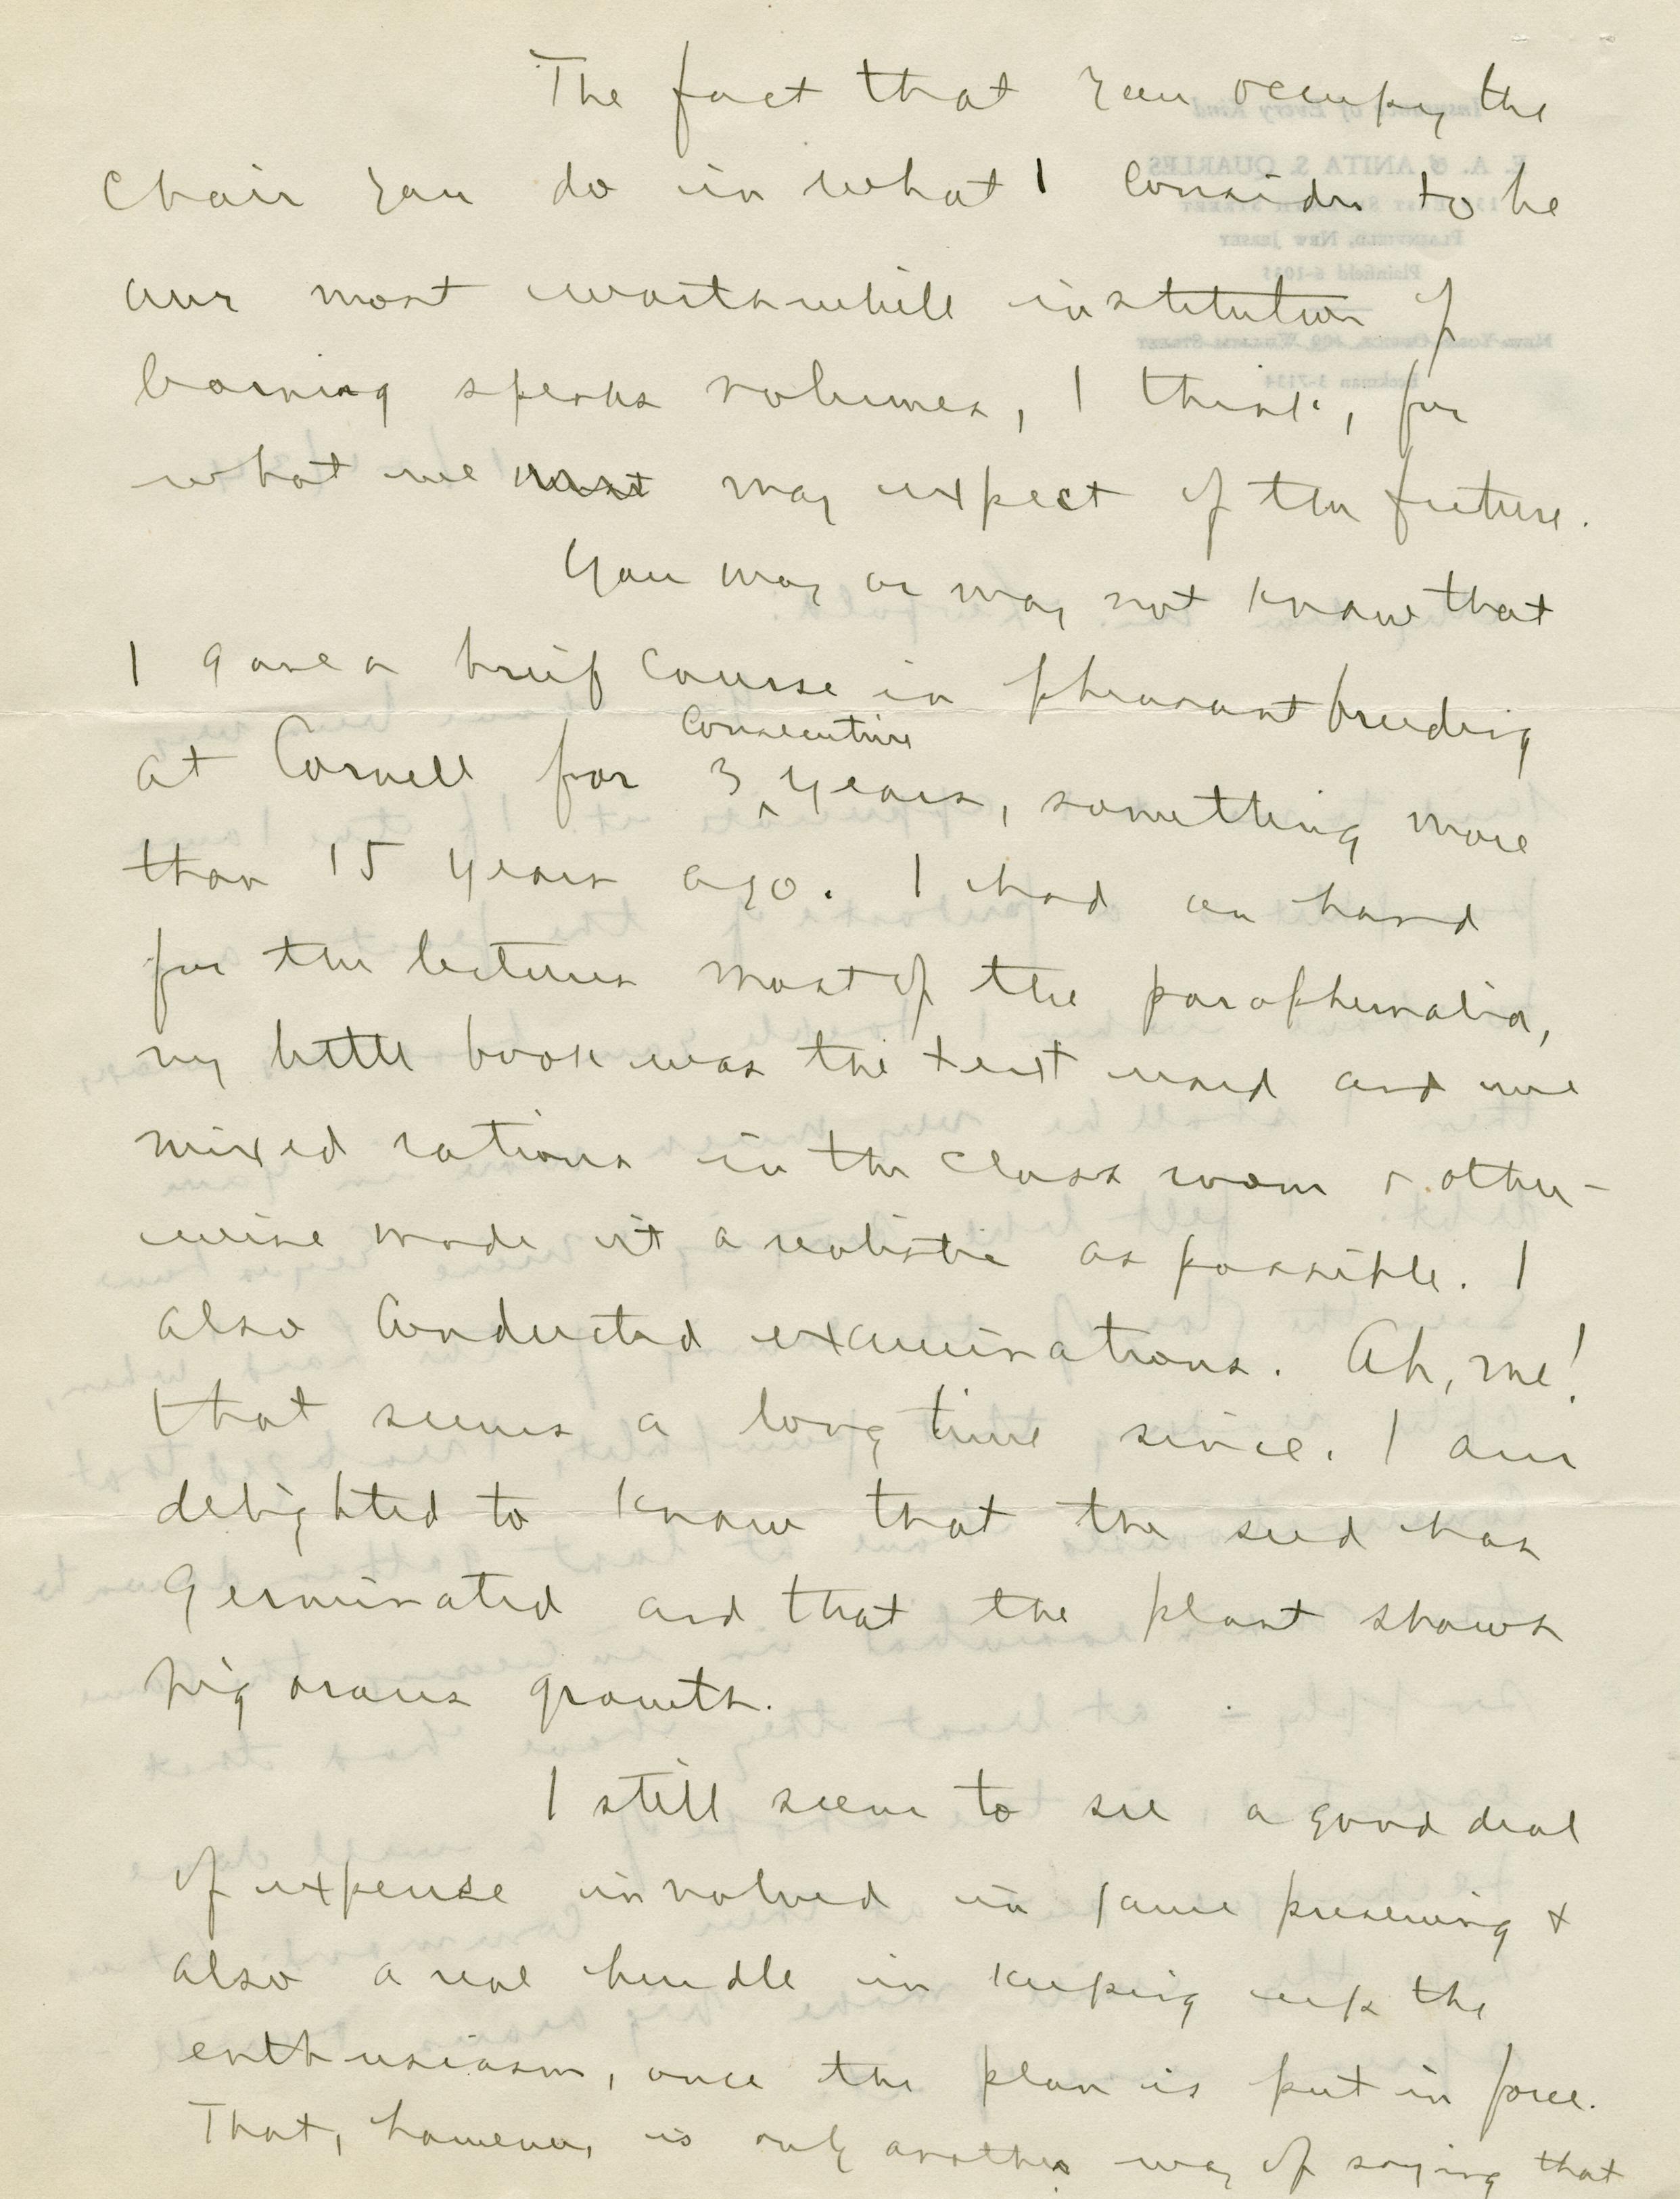 The fact that you occupy the
chair you do in what I consider to be
our most worthwhile institution of
learning speaks volumes, I think, for
what we must may expect of the future.
You may or may not know that
I gave a brief course in pheasant breeding
at Cornell for 3 consecutive years, something more
than 15 years ago. I had on hand
for the lectures most of the paraphernalia,
my little book was the text used and we
mixed rations in the class room & other-
wise made it a realistic as possible. I
also conducted examinations. Ah, me!
that seems a long time since. I am
delighted to know that the seed has
germinated and that the plant shows
vigorous growth.
I still seem to see a good deal
of expense involved in game preserving &
also a real hurdle in keeping up the
enthusiasm, once the plan is put in force.
That, however, is only another way of saying that
Insurance of Every Kind
E. A. & ANITA S. QUARLES
PLAINFIELD, NEW JERSEY
Plainfield 6-1035
NEW YORK OFFICE, 109 WILLIAM STREET
Beekman 3-7134